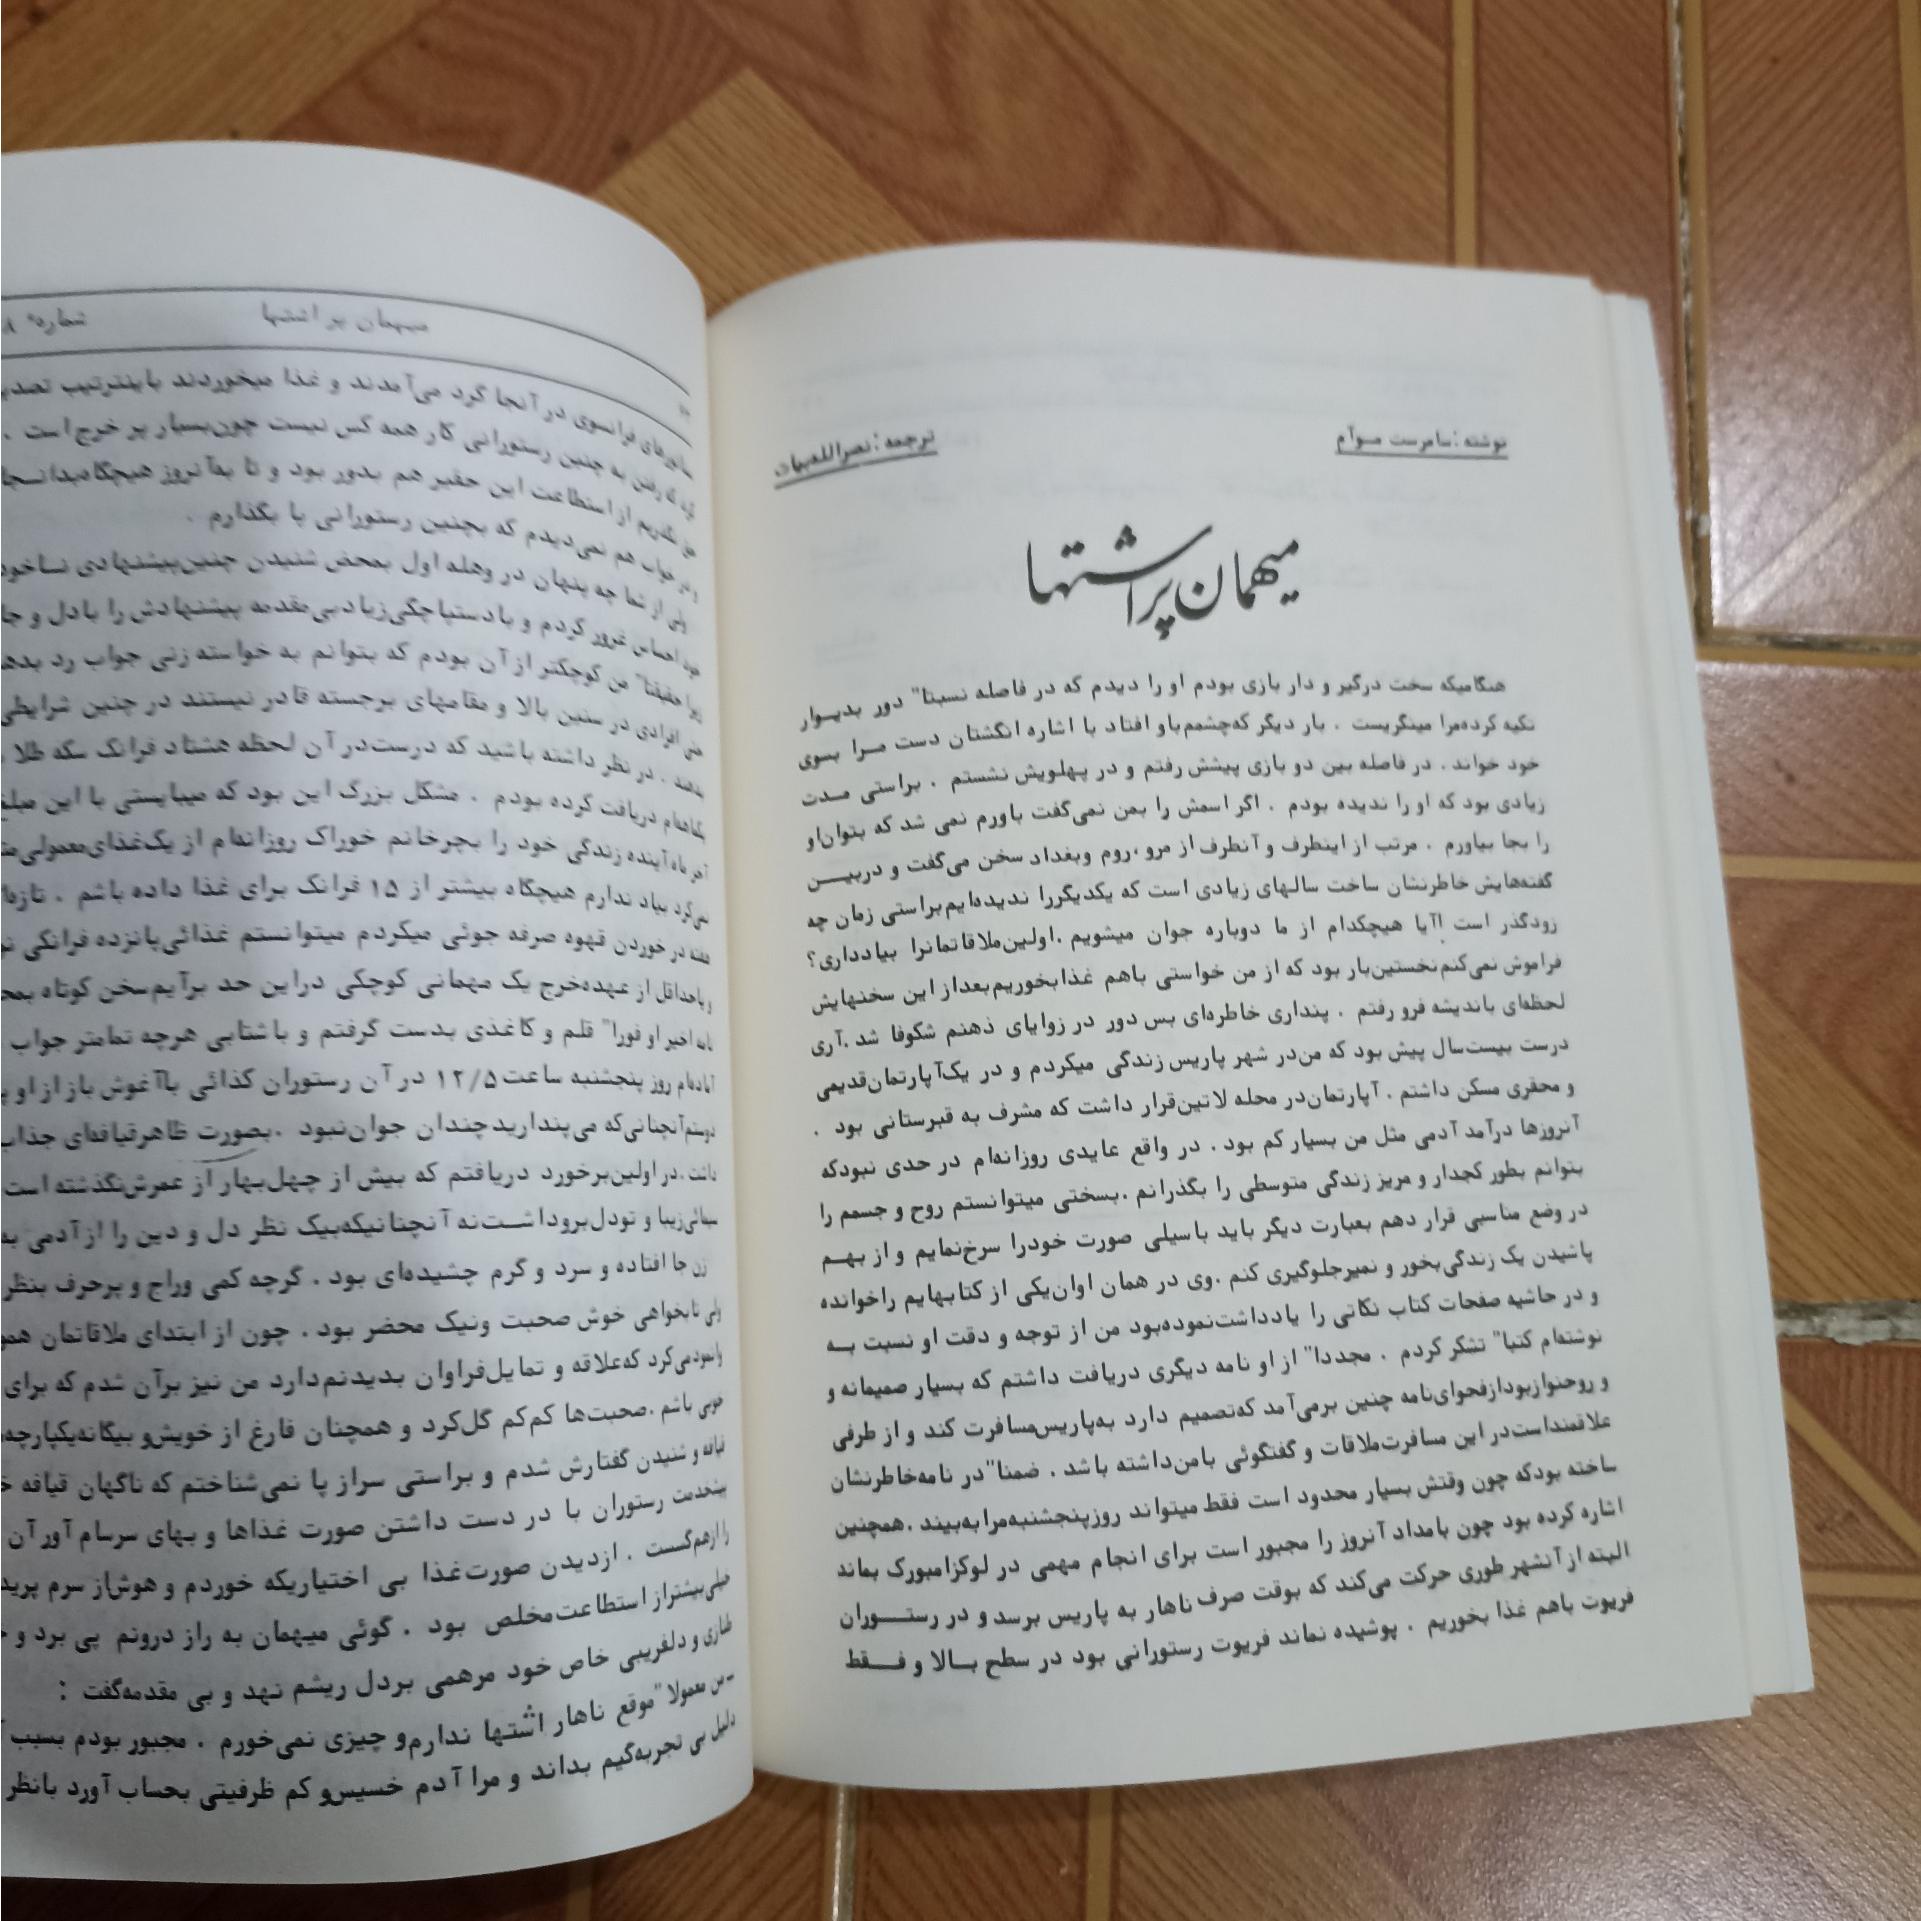 نوشته : سامرست موآم
ترجمه : نصرالله
میهمان پراشتها
هنگامیکه سخت درگیر و دار بازی بودم او را دیدم که در فاصله نسبتا" دور بدیوار
تکیه کرده‌مرا مینگریست . بار دیگر که‌چشمم‌باو افتاد با اشاره انگشتان دست مرا بسوی
خود خواند . در فاصله بین دو بازی پیشش رفتم و در پهلویش نشستم . براستی مدت
زیادی بود که او را ندیده بودم . اگر اسمش را بمن نمی‌گفت باورم نمی شد که بتوان‌او
را بجا بیاورم . مرتب از اینطرف و آنطرف از مرو ،روم وبغداد سخن می‌گفت و دربین
گفته‌هایش خاطرنشان ساخت سالهای زیادی است که یکدیگررا ندیده‌ایم‌براستی زمان چه
زودگذر است !آیا هیچکدام از ما دوباره جوان میشویم .اولین‌ملاقاتمانرا بیادداری؟
فراموش نمی‌کنم‌نخستین‌بار بود که از من خواستی باهم غذابخوریم‌بعداز این سخنهایش
لحظه‌ای باندیشه فرو رفتم . پنداری خاطره‌ای بس دور در زوایای ذهنم شکوفا شد .آری
درست بیست‌سال پیش بود که من‌در شهر پاریس زندگی میکردم و در یک‌آپارتمان‌قدیمی
و محقری مسکن داشتم . آپارتمان‌در محله لاتین‌قرار داشت که مشرف به قبرستانی بود .
آنروزها درآمد آدمی مثل من بسیار کم بود . در واقع عایدی روزانه‌ام در حدی نبودکه
بتوانم بطور کجدار و مریز زندگی متوسطی را بگذرانم .بسختی میتوانستم روح و جسمم را
در وضع مناسبی قرار دهم بعبارت دیگر باید باسیلی صورت خودرا سرخ‌نمایم و از بهم
پاشیدن یک زندگی‌بخور و نمیرجلوگیری کنم .وی در همان اوان‌یکی از کتابهایم راخوانده
و در حاشیه صفحات کتاب نکاتی را یادداشت‌نموده‌بود من از توجه و دقت او نسبت به
نوشته‌ام کتبا" تشکر کردم . مجددا" از او نامه دیگری دریافت داشتم که بسیار صمیمانه و
و روحنوازبوداز‌فحوای‌نامه چنین برمی‌آمد که‌تصمیم دارد به‌پاریس‌مسافرت کند و از طرفی
علاقمنداست‌در این مسافرت‌ملاقات و گفتگوئی بامن‌داشته باشد . ضمنا"در نامه‌خاطرنشان
ساخته بودکه چون وقتش بسیار محدود است فقط میتواند روزپنجشنبه‌مرا‌به‌بیند .همچنین
اشاره کرده بود چون بامداد آنروز را مجبور است برای انجام مهمی در لوکزامبورک بماند
البته از آنشهر طوری حرکت می‌کند که بوقت صرف ناهار به پاریس برسد و در رستوران
فریوت باهم غذا بخوریم . پوشیده نماند فریوت رستورانی بود در سطح بالا و فقط
میهمان پر اشتها
شماره ۸
فرانسوی در آنجا گرد می‌آمدند و غذا میخوردند باینترتیب
که رفتن به چنین رستورانی کار همه کس نیست چون‌بسیار پر خرج است .
از استطاعت این حقیر هم بدور بود و تا به‌آنروز هیچگاه‌بدانجا
خواب هم نمی‌دیدم که بچنین رستورانی پا بگذارم .
ولی از شما چه پنهان در وهله اول بمحض شنیدن چنین‌پیشنهادی
احساس غرور کردم و بادستپاچگی‌زیادبی‌مقدمه پیشنهادش را بادل و
زیرا حقیقتا" من کوچکتر از آن بودم که بتوانم به خواسته زنی جواب رد
حتی افرادی در سنین بالا و مقامهای برجسته قادر نیستند در چنین شرایطی
بدهند . در نظر داشته باشید که درست‌در آن لحظه هشتاد فرانک سکه طلا
دریافت کرده بودم . مشکل بزرگ این بود که میبایستی با این
آخر ماه‌آینده زندگی خود را بچرخانم خوراک روزانه‌ام از یک‌غذای‌معمولی
نمی‌کرد بیاد ندارم هیچگاه بیشتر از ۱۵ فرانک برای غذا داده باشم .
هفته در خوردن قهوه صرفه جوئی میکردم میتوانستم غذائی‌پانزده فرانکی
و یاحداقل از عهده‌خرج یک مهمانی کوچکی دراین حد برآیم‌سخن کوتاه
نامه اخیر او فورا" قلم و کاغذی بدست گرفتم و باشتابی هرچه تمامتر جواب
آماده‌ام روز پنجشنبه ساعت ۱۲/۵ در آن رستوران کذائی باآغوش باز از او
آنچنانی‌که می‌پنداریدچندان جوان‌نبود .بصورت ظاهرقیافه‌ای
داشت .در اولین‌برخورد دریافتم که بیش از چهل‌بهار از عمرش‌نگذشته است
سیمائی‌زیبا و تودل‌بروداشت‌نه آنچنانیکه‌بیک نظر دل و دین را از آدمی
زن جا افتاده و سرد و گرم چشیده‌ای بود . گرچه کمی وراج و پرحرف بنظر
ولی تابخواهی خوش صحبت ونیک محضر بود . چون از ابتدای ملاقاتمان
وانمودمی‌کرد که‌علاقه و تمایل‌فراوان بدیدنم‌دارد من نیز برآن شدم که برای
خوبی باشم .صحبت‌ها کم‌کم گل‌کرد و همچنان فارغ از خویش‌و بیگانه
قیافه و شنیدن گفتارش شدم و براستی سراز پا نمی‌شناختم که ناگهان قیافه
پیشخدمت رستوران با در دست داشتن صورت غذاها و بهای سرسام آور آن
را ازهم‌گسست . ازدیدن صورت‌غذا بی اختیاریکه خوردم و هوش‌از سرم
خیلی‌بیشتراز استطاعت‌مخلص بود . گوئی میهمان به راز درونم پی برد و
طنازی و دلفریبی خاص خود مرهمی بردل ریشم نهد و بی مقدمه‌گفت :
- من معمولا "موقع ناهار اشتها ندارم‌و چیزی نمی‌خورم . مجبور بودم بسبب
دلیل بی تجربه‌گیم بداند و مرا آدم خسیس‌و کم ظرفیتی بحساب آورد بانظر